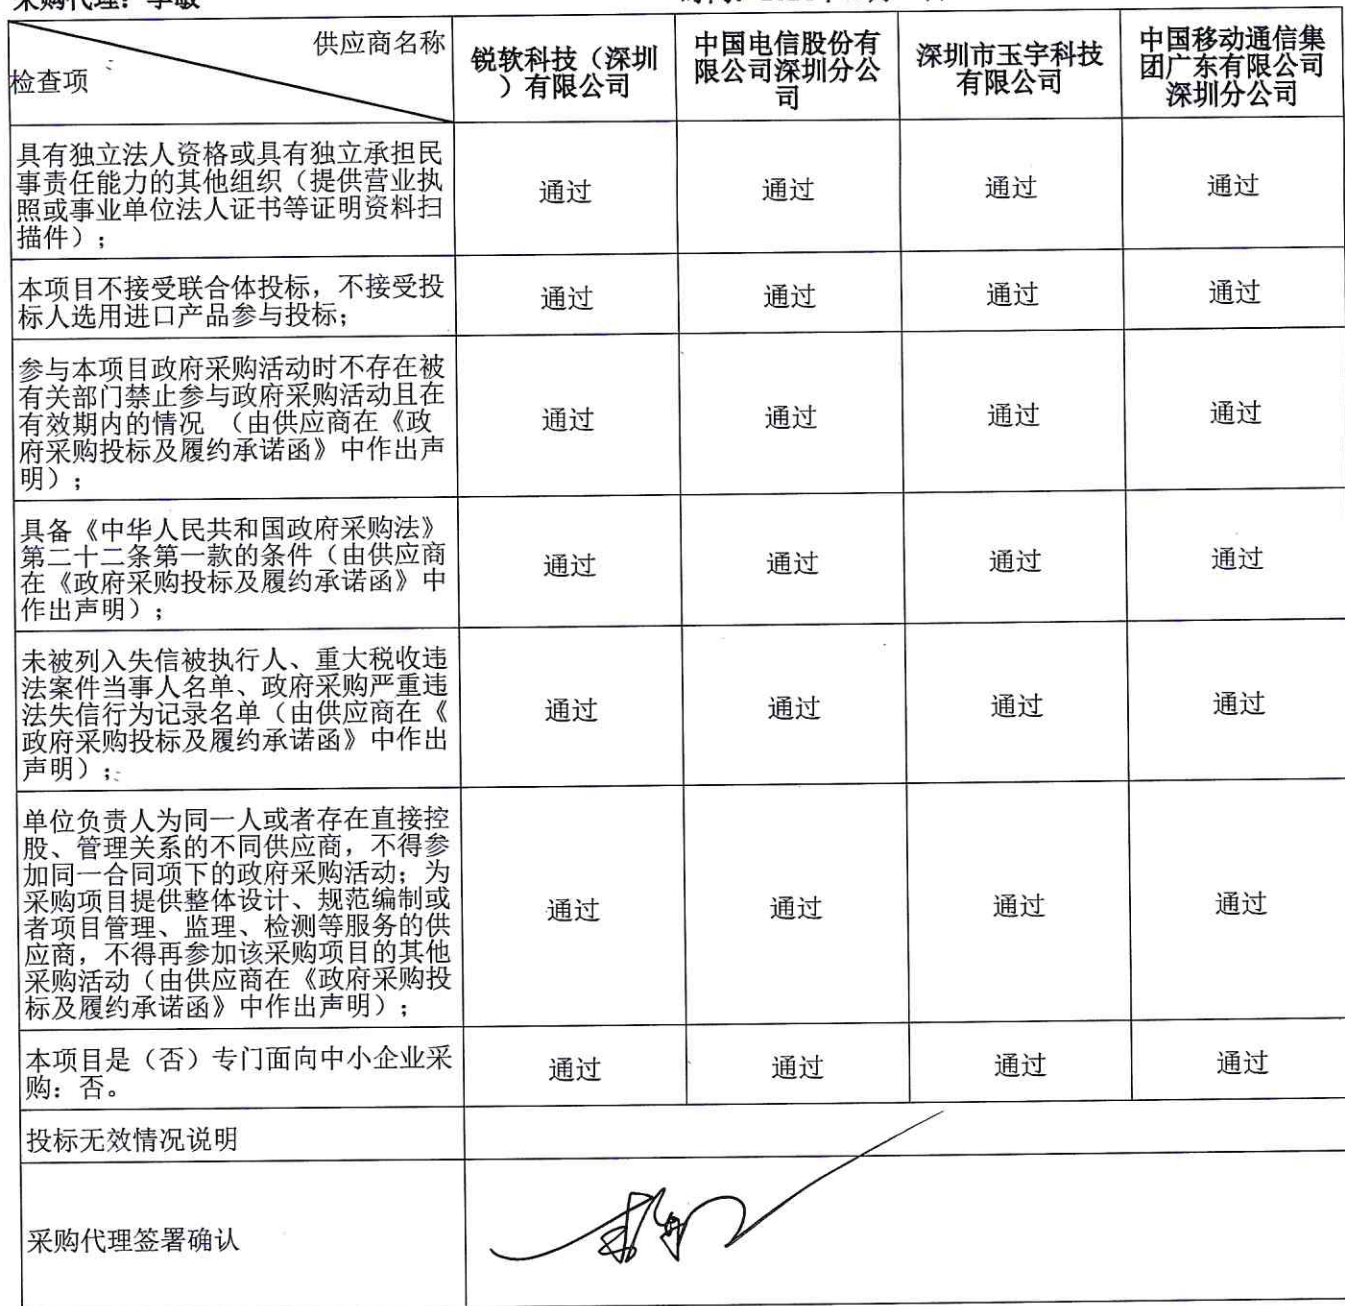 采购代理：李敏
供应商名称
检查项
锐软科技（深圳
）有限公司
中国电信股份有
限公司深圳分公
司
深圳市玉宇科技
有限公司
中国移动通信集
团广东有限公司
深圳分公司
具有独立法人资格或具有独立承担民
事责任能力的其他组织（提供营业执
照或事业单位法人证书等证明资料扫
描件）；
通过 通过 通过 通过
本项目不接受联合体投标，不接受投
标人选用进口产品参与投标；
通过 通过 通过 通过
参与本项目政府采购活动时不存在被
有关部门禁止参与政府采购活动且在
有效期内的情况 （由供应商在《政
府采购投标及履约承诺函》中作出声
明）；
通过 通过 通过 通过
具备《中华人民共和国政府采购法》
第二十二条第一款的条件（由供应商
在《政府采购投标及履约承诺函》中
作出声明）；
通过 通过 通过 通过
未被列入失信被执行人、重大税收违
法案件当事人名单、政府采购严重违
法失信行为记录名单（由供应商在《
政府采购投标及履约承诺函》中作出
声明）；
通过 通过 通过 通过
单位负责人为同一人或者存在直接控
股、管理关系的不同供应商，不得参
加同一合同项下的政府采购活动；为
采购项目提供整体设计、规范编制或
者项目管理、监理、检测等服务的供
应商，不得再参加该采购项目的其他
采购活动（由供应商在《政府采购投
标及履约承诺函》中作出声明）；
通过 通过 通过 通过
本项目是（否）专门面向中小企业采
购：否。
通过 通过 通过 通过
投标无效情况说明
采购代理签署确认